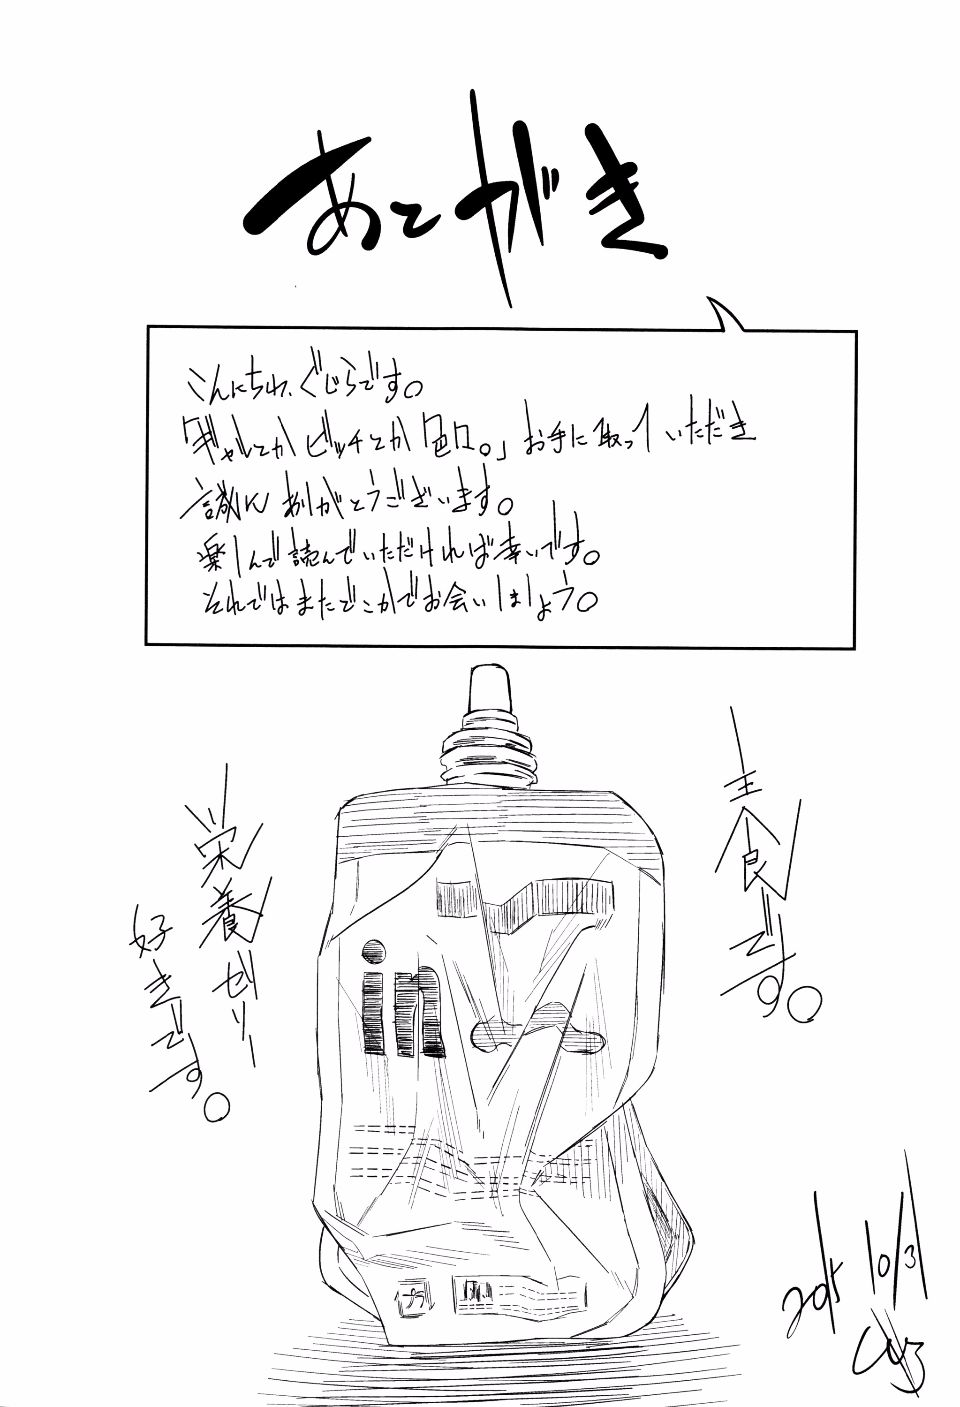 あとがき
こんにちわ、ぐじらです。
「ギャルとかビッチとか色々。」お手に取っていただき
誠にありがとうございます。
楽しんで読んでいただければ幸いです。
それではまたどこかでお会いしましょう。
主食です。
栄養ゼリー
好きです。
in
プラ
2015 10/31